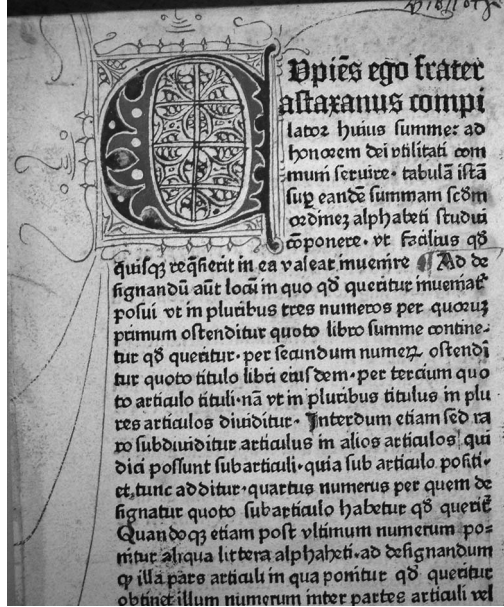 Cupiẽs ego frater
astaxanus compi
lator huius summe: ad
honorem dei vtilitati com
muni seruire· tabulã istã
sup̱ eandẽ summam scd̃m
ordinez alphabeti studui
cõponere· vt facilius qd̃
quisqꝫ req̃sierit in ea valeat inuenire ¶ Ad de
signandũ aũt locũ in quo qd̃ queritur inueniat᷑
posui vt in pluribus tres numeros per quoruꝫ
primum ostenditur quoto libro summe contine-
tur qd̃ queritur· per secundum numeꝝ ostendi
tur quoto titulo libri eiusdem· per tercium quo
to articulo tituli· nã vt in pluribus titulus in plu
res articulos diuiditur· Interdum etiam sed ra
ro subdiuiditur articulus in alios articulos qui
dici possunt subarticuli· quia sub articulo positi·
et tunc additur· quartus numerus per quem de
signatur quoto subarticulo habetur qd̃ querit᷑
Quandoqꝫ etiam post vltimum numerum po-
nitur aliqua littera alphabeti· ad designandum
ꝙ illa pars articuli in qua ponitur qd̃ queritur
obtinet illum numerum inter partes articuli vel